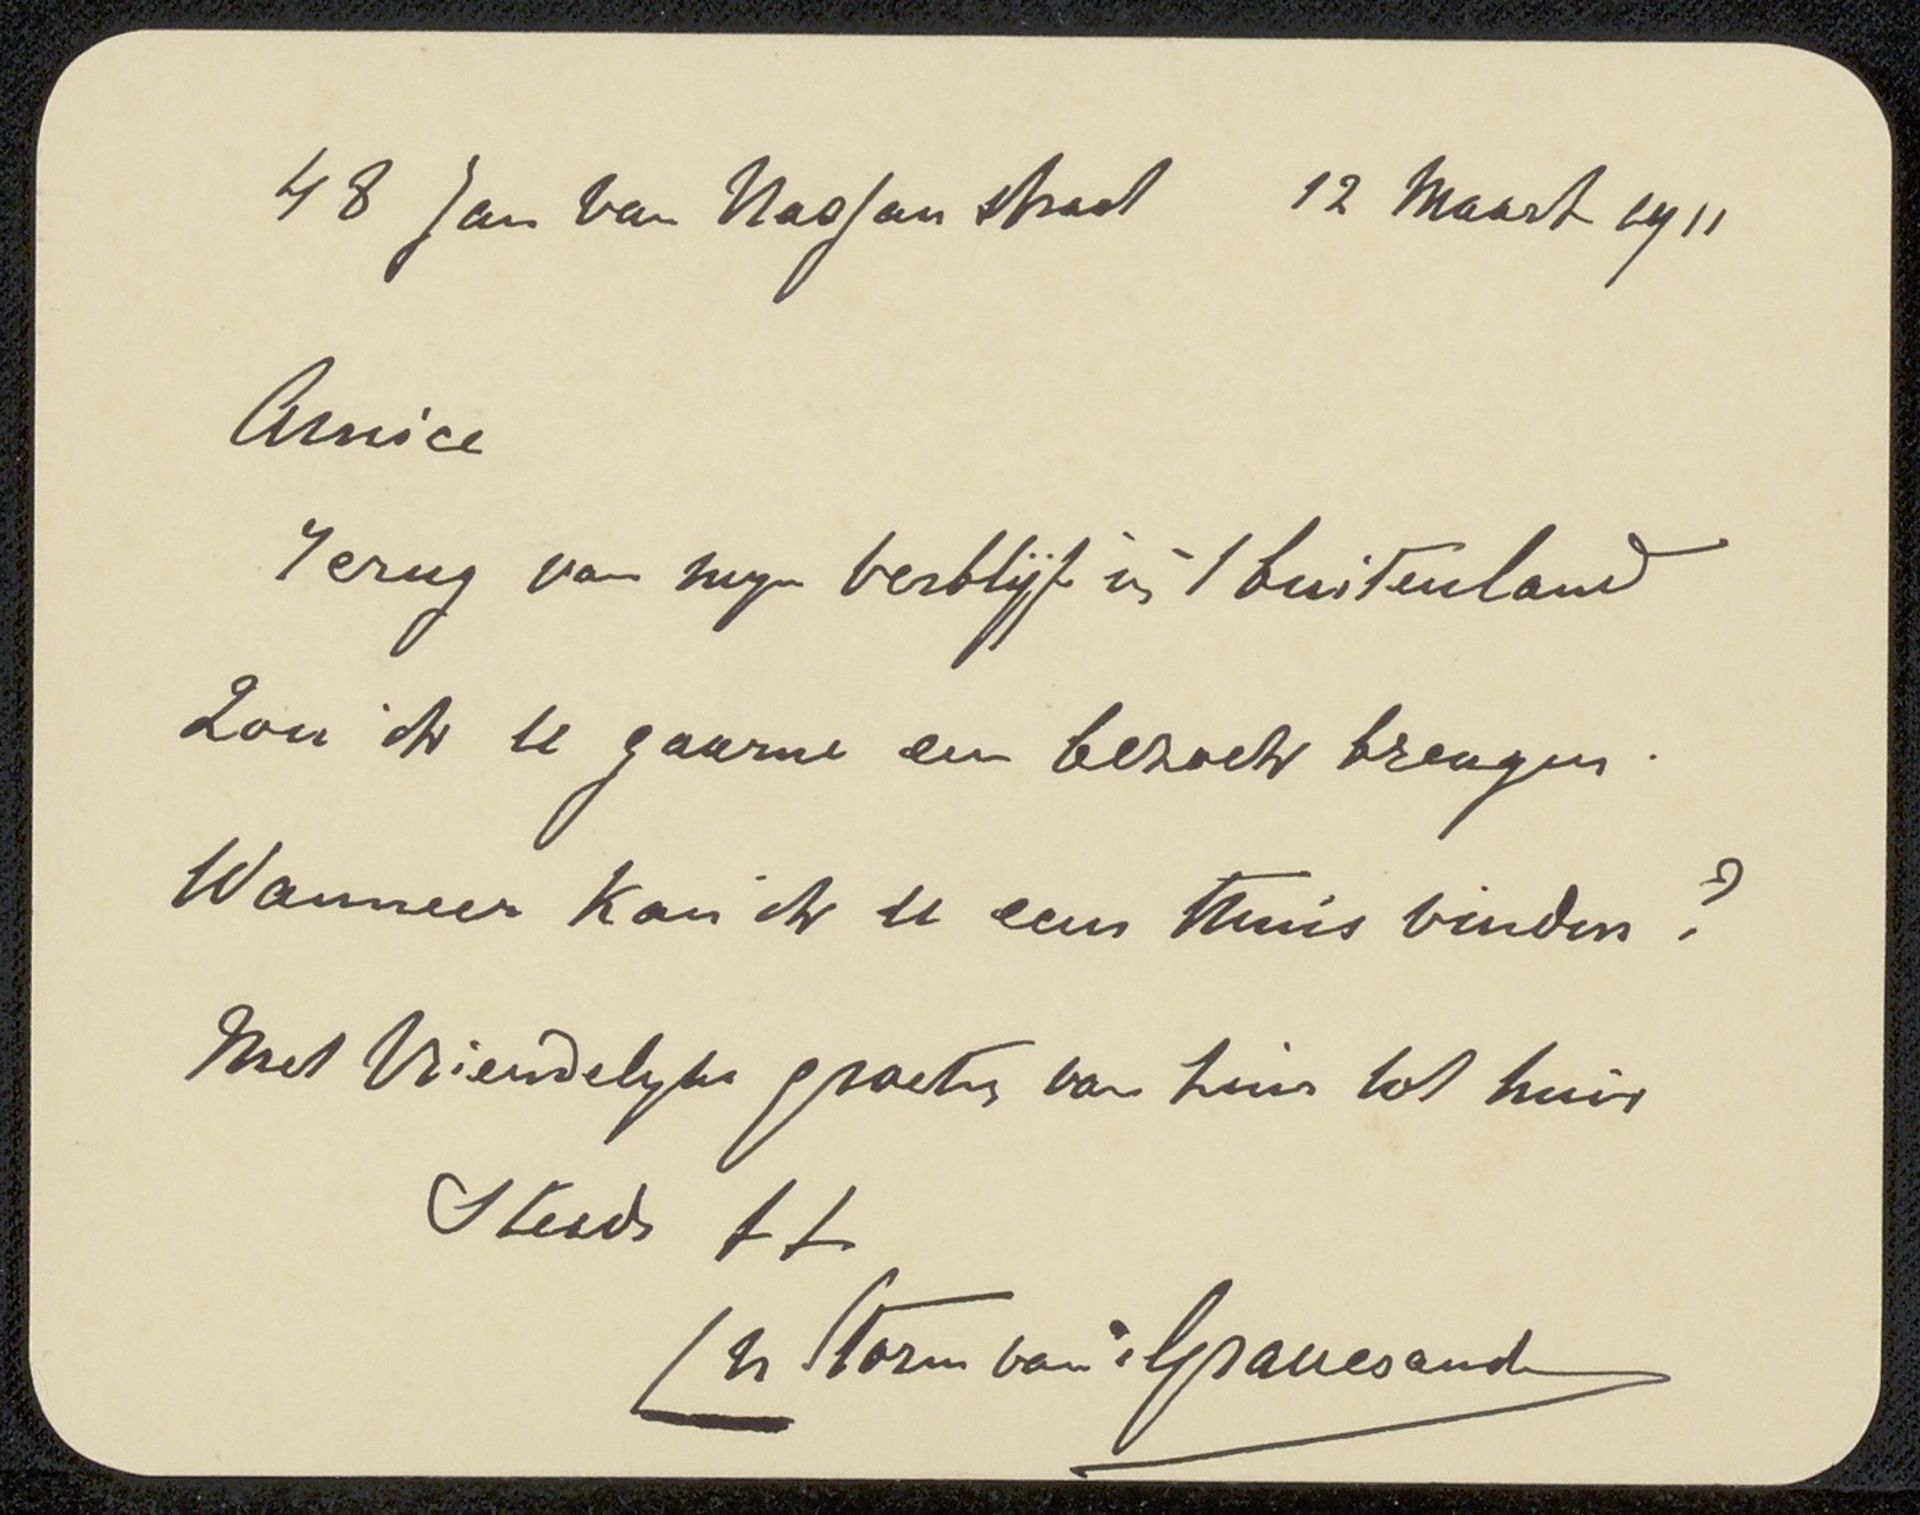 48 Jan van Nassau straat 12 Maart 1911
Amice
Terug van myn verblijf in 't buitenland
Zou ik U gaarne een bezoek brengen.
Wanneer kan ik U eens thuis vinden?
Met Vriendelyke groeten van huis tot huis
Steeds tt
Storm van 's Gravesande